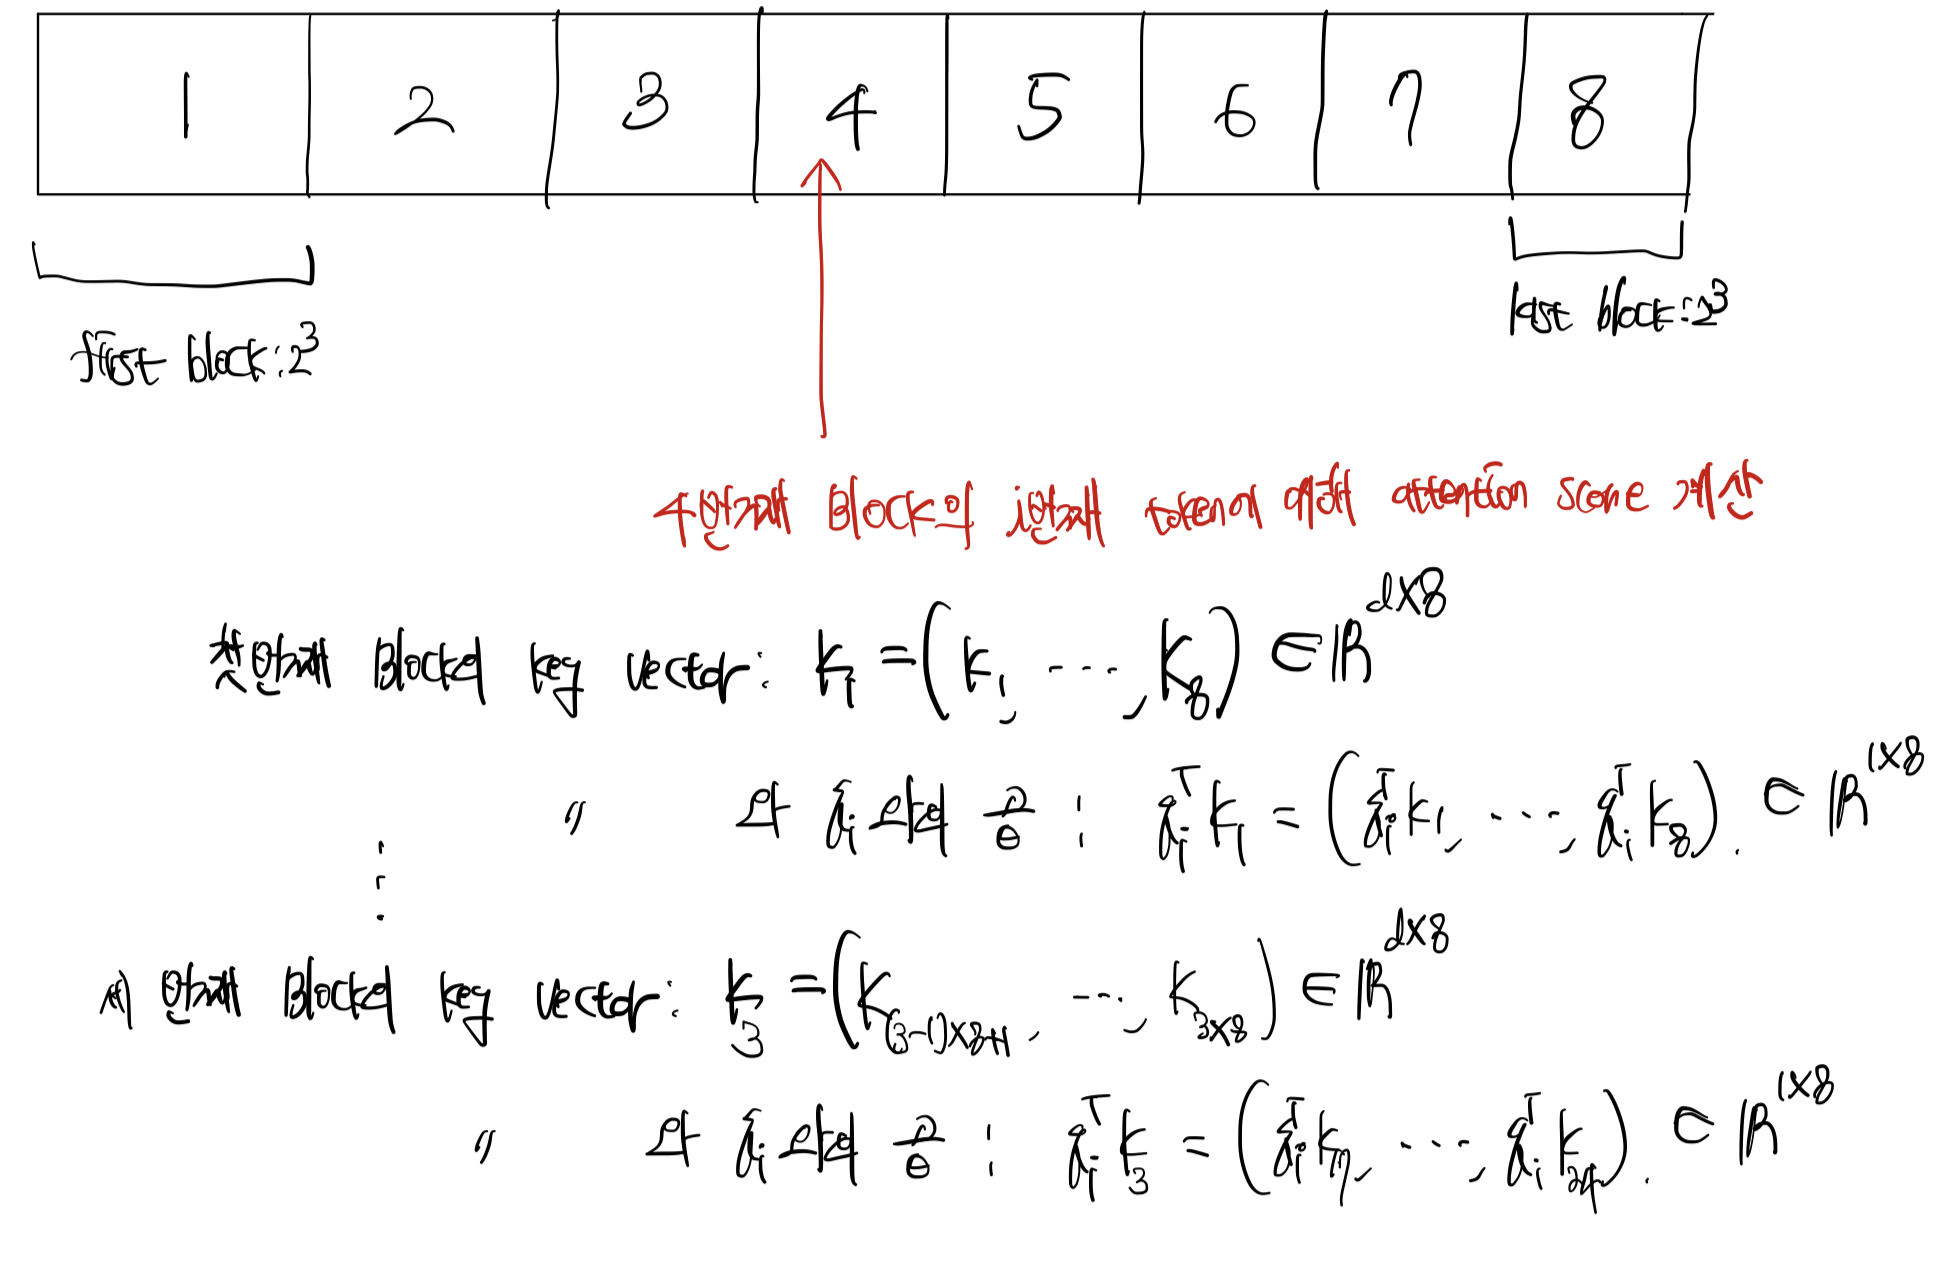 1 2 3 4 5 6 7 8
first block: 2³ last block: 2³
4번째 Block의 i번째 token에 대해 attention score 계산
첫번째 Blocked key vector: K₁ = (k₁, ⋯, k₈) ∈ ℝ^{d×8}
〃 와 qᵢ 와의 곱 : qᵢᵀ K₁ = (qᵢᵀ k₁, ⋯, qᵢᵀ k₈). ∈ ℝ^{1×8}
⋮
세번째 Blocked key vector: K₃ = (k_{(3-1)×8+1}, ⋯, k_{3×8}) ∈ ℝ^{d×8}
〃 와 qᵢ 와의 곱 : qᵢᵀ K₃ = (qᵢᵀ k₁₇, ⋯, qᵢᵀ k₂₄). ∈ ℝ^{1×8}